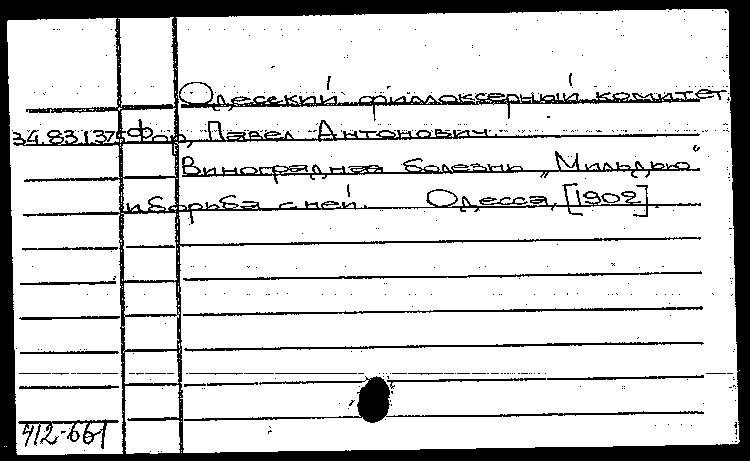 Одесский филлоксерный комитет
34.83.1375 Фор, Павел Антонович.
Виноградная болезнь „Мильдью"
и борьба с ней. Одесса, [1902].
412-661